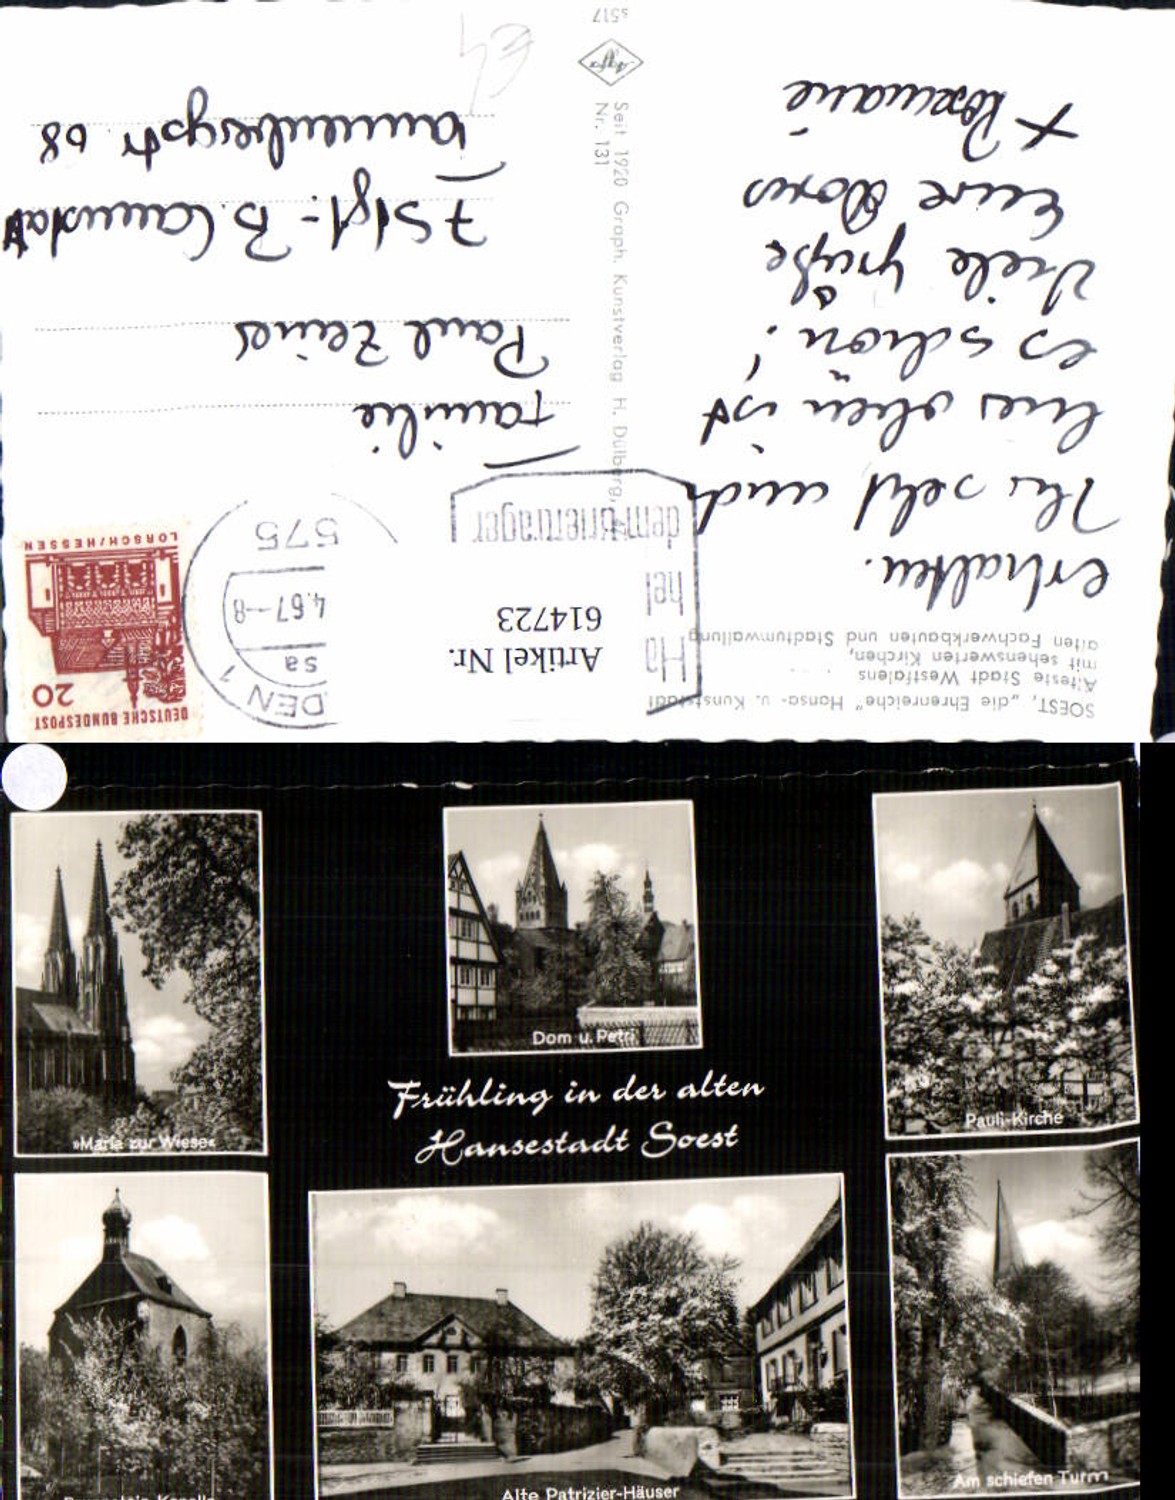 SOEST, „die Ehrenreiche" Hansa- u. Kunststadt
Älteste Stadt Westfalens
mit sehenswerten Kirchen,
alten Fachwerkbauten und Stadtumwallung
erhalten.
Ihr seht auch
hier oben ist
es schön!
Viele Grüße
Eure Doris
+ Rosmarie
Seit 1920 Graph. Kunstverlag H. Dülberg,
Nr. 131
Agfa
s517
DEUTSCHE BUNDESPOST
20
LORSCH/HESSEN
DEN 1
Sa
4.67--8
575
Ha
hel
dem Briefträger
Artikel Nr.
614723
Familie
Paul Zeiner
7 Stgt.- B. Cannstatt
Tannenbergstr. 68
»Maria zur Wiese«
Dom u. Petri
Pauli-Kirche
Frühling in der alten
Hansestadt Soest
Alte Patrizier-Häuser
Am schiefen Turm